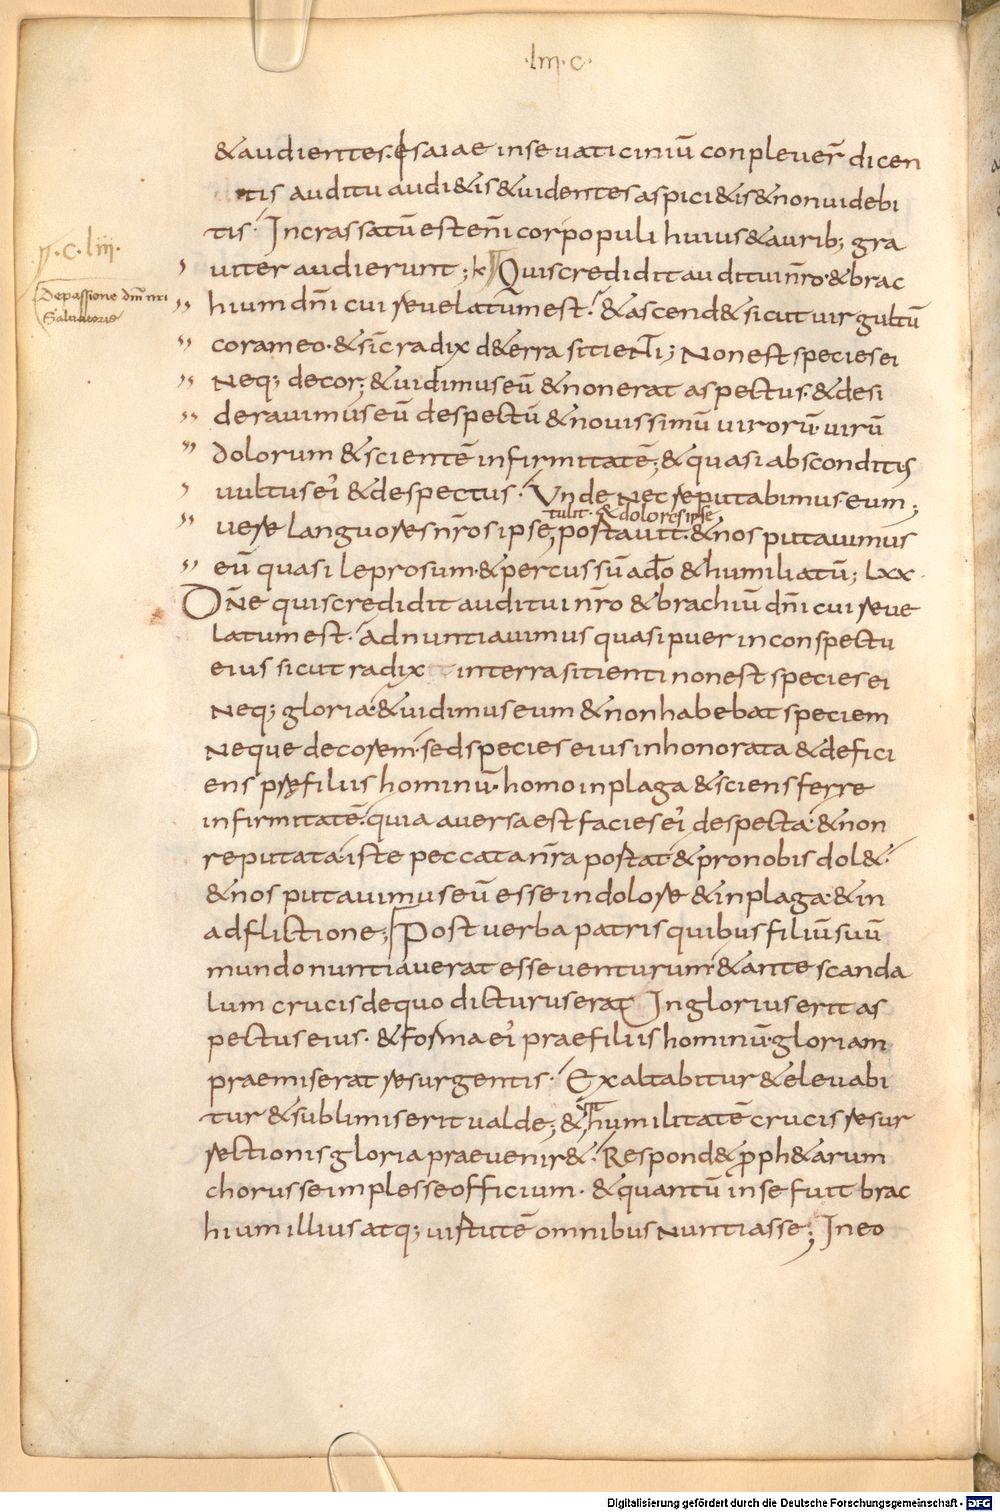 ·lııı·c·
&audientes. esaiae inse uaticiniū conpleuer̄ dicen
tis auditu audi&is &uidentes aspici&is &nonuidebi
tis· Incrassatū est eni̅ cor populi huius &aurib; gra
·c·liii·
uiter audierunt; Quis credidit auditui nr̄o· &brac
Depassione dn̄i nr̄i
Saluatoris
hium dn̄i cui reuelatum est· &ascend& sicut uirgultū
coram eo· &sic̄ radix d&erra sitienti; Non est species ei
Neq; decor; &uidimus eū &non erat aspectus· &desi
derauimus eū despectū &nouissimū uirorū· uirū
dolorum &scientē infirmitatē; &quasi absconditus
uultus ei' &despectus· Unde nec reputabimus eum;
tulit· &dolores ipse
uere languores nr̄os ipse portauit· &nos putauimus
eū quasi leprosum· &percussū ad̄o &humiliatū; lxx·
Dn̄e quis credidit auditui nr̄o &brachiū dn̄i cui reue
latum est· adnuntiauimus quasi puer in conspectu
eius sicut radix interra sitienti non est species ei
Neq; gloria· &uidimus eum &non habebat speciem
Neque decorem· sed species eius inhonorata &defici
ens pręfiliis hominū· homo inplaga &sciens ferre
infirmitatē· quia auersa est facies ei' despecta· &non
reputata· iste peccata nr̄a portat &pro nobis dol&·
&nos putauimus eū esse in dolore &inplaga· &in
adflictione; Post uerba patris quibus filiū suū
mundo nuntiauerat esse uenturum· &ante scanda
lum crucis de quo dicturus erat Inglorius erit as
pectus eius· &forma ei' praefiliis hominū· gloriam
praemiserat resurgentis· Exaltabitur &eleuabi
tur &sublimis erit ualde; & humilitatē crucis resur
rectionis gloria praeuenir&· Respond& proph&arum
chorus se implesse officium· &quantū inse fuit brac
hium illius atq; uirtutē omnibus nuntiasse; In eo
Digitalisierung gefördert durch die Deutsche Forschungsgemeinschaft - DFG